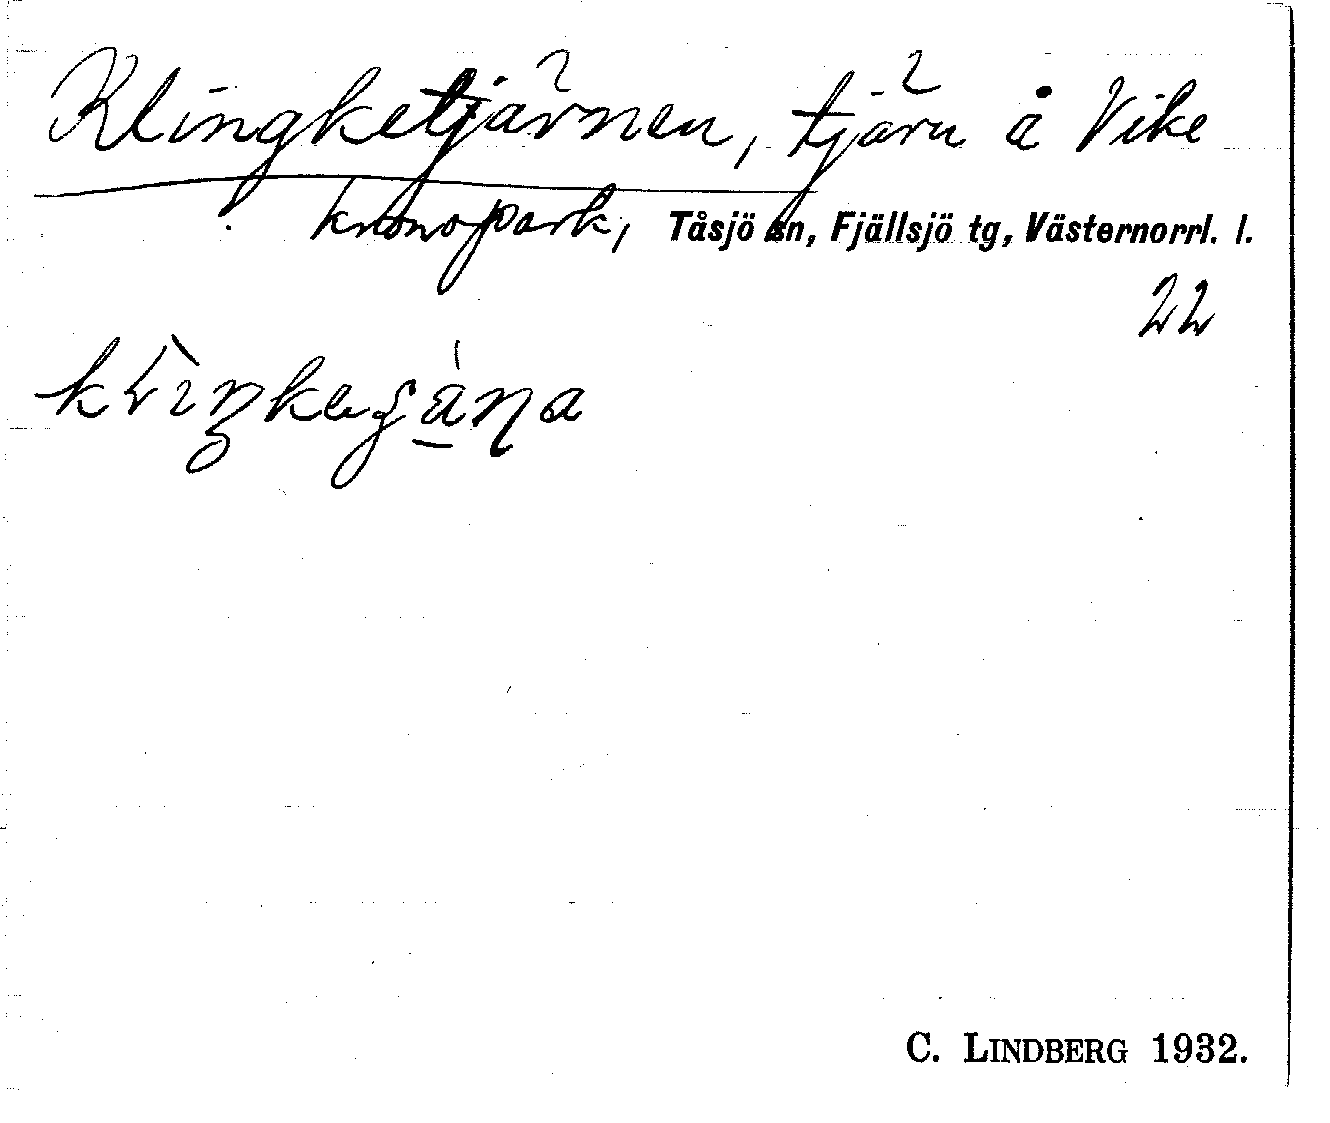 Klingketjärnen, tjärn å Vike
kronopark, Tåsjö sn, Fjällsjö tg, Västernorrl. l.
22
C. LINDBERG 1932.